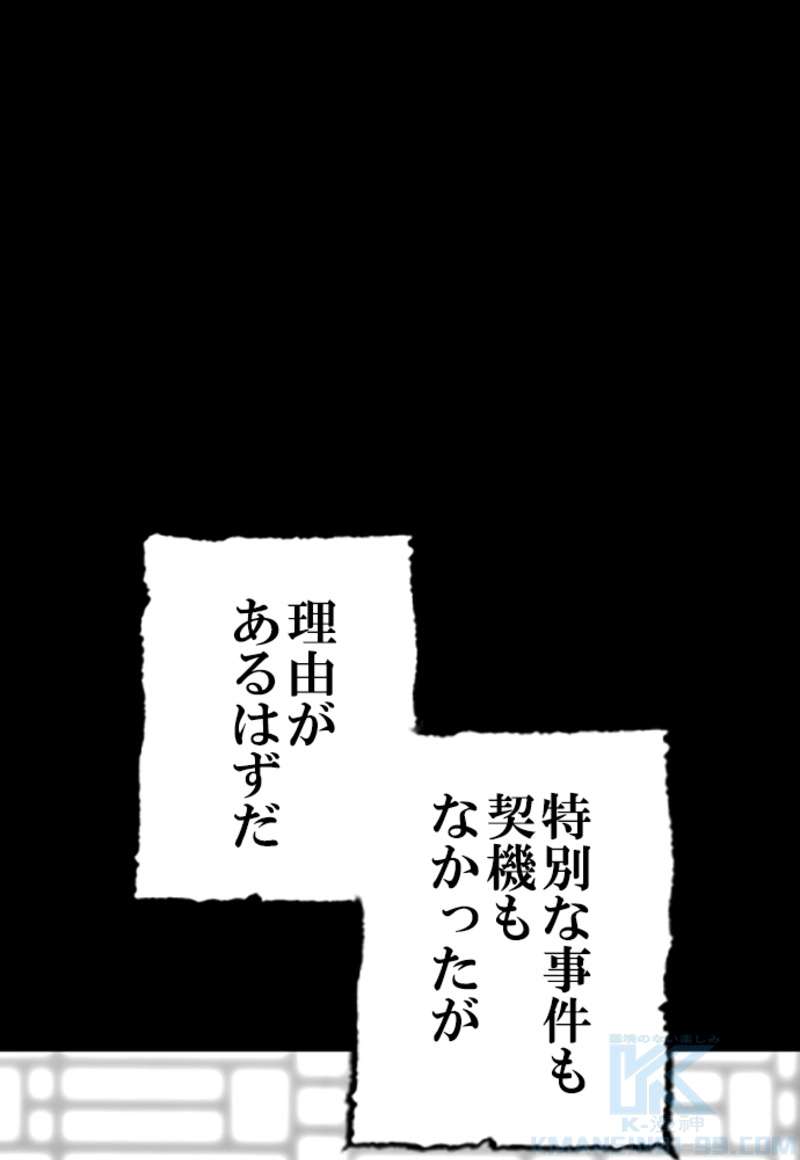 理由が
あるはずだ
特別な事件も
契機も
なかったが
K-漫神